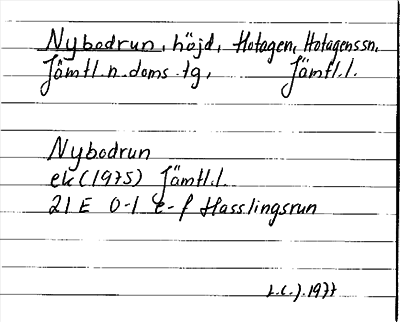 Nybodrun, höjd, Hotagen, Hotagenssn,
Jämtl.n.doms.tg, Jämtl.l.
Nybodrun
ek (1975) Jämtl.l.
21E 0-1 e-f Hasslingsrun
L.C.J. 1977